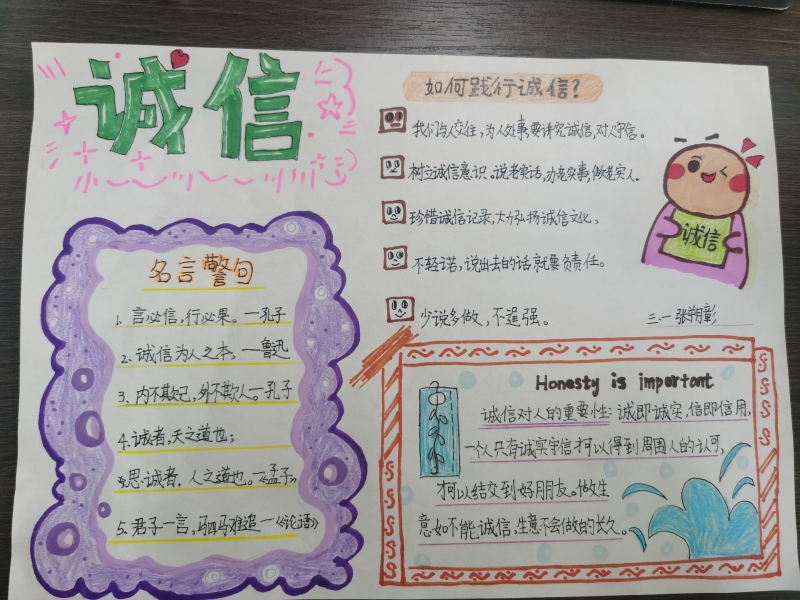 诚信
名言警句
1、言必信,行必果。—孔子
2、诚信为人之本。—鲁迅
3、内不欺己,外不欺人—孔子
4、诚者,天之道也;
思诚者,人之道也。—《孟子》
5、君子一言,驷马难追—《论语》
如何践行诚信?
我们与人交往,为人处事要讲究诚信,对人守信。
树立诚信意识。说老实话,办老实事,做老实人。
珍惜诚信记录,大力弘扬诚信文化。
不轻诺,说出去的话就要负责任。
少说多做,不逞强。
诚信
三一 张翔彰
Honesty is important
诚信对人的重要性:诚即诚实,信即信用,
一个人只有诚实守信才可以得到周围人的认可,
才可以结交到好朋友。做生
意如不能诚信,生意不会做的长久。